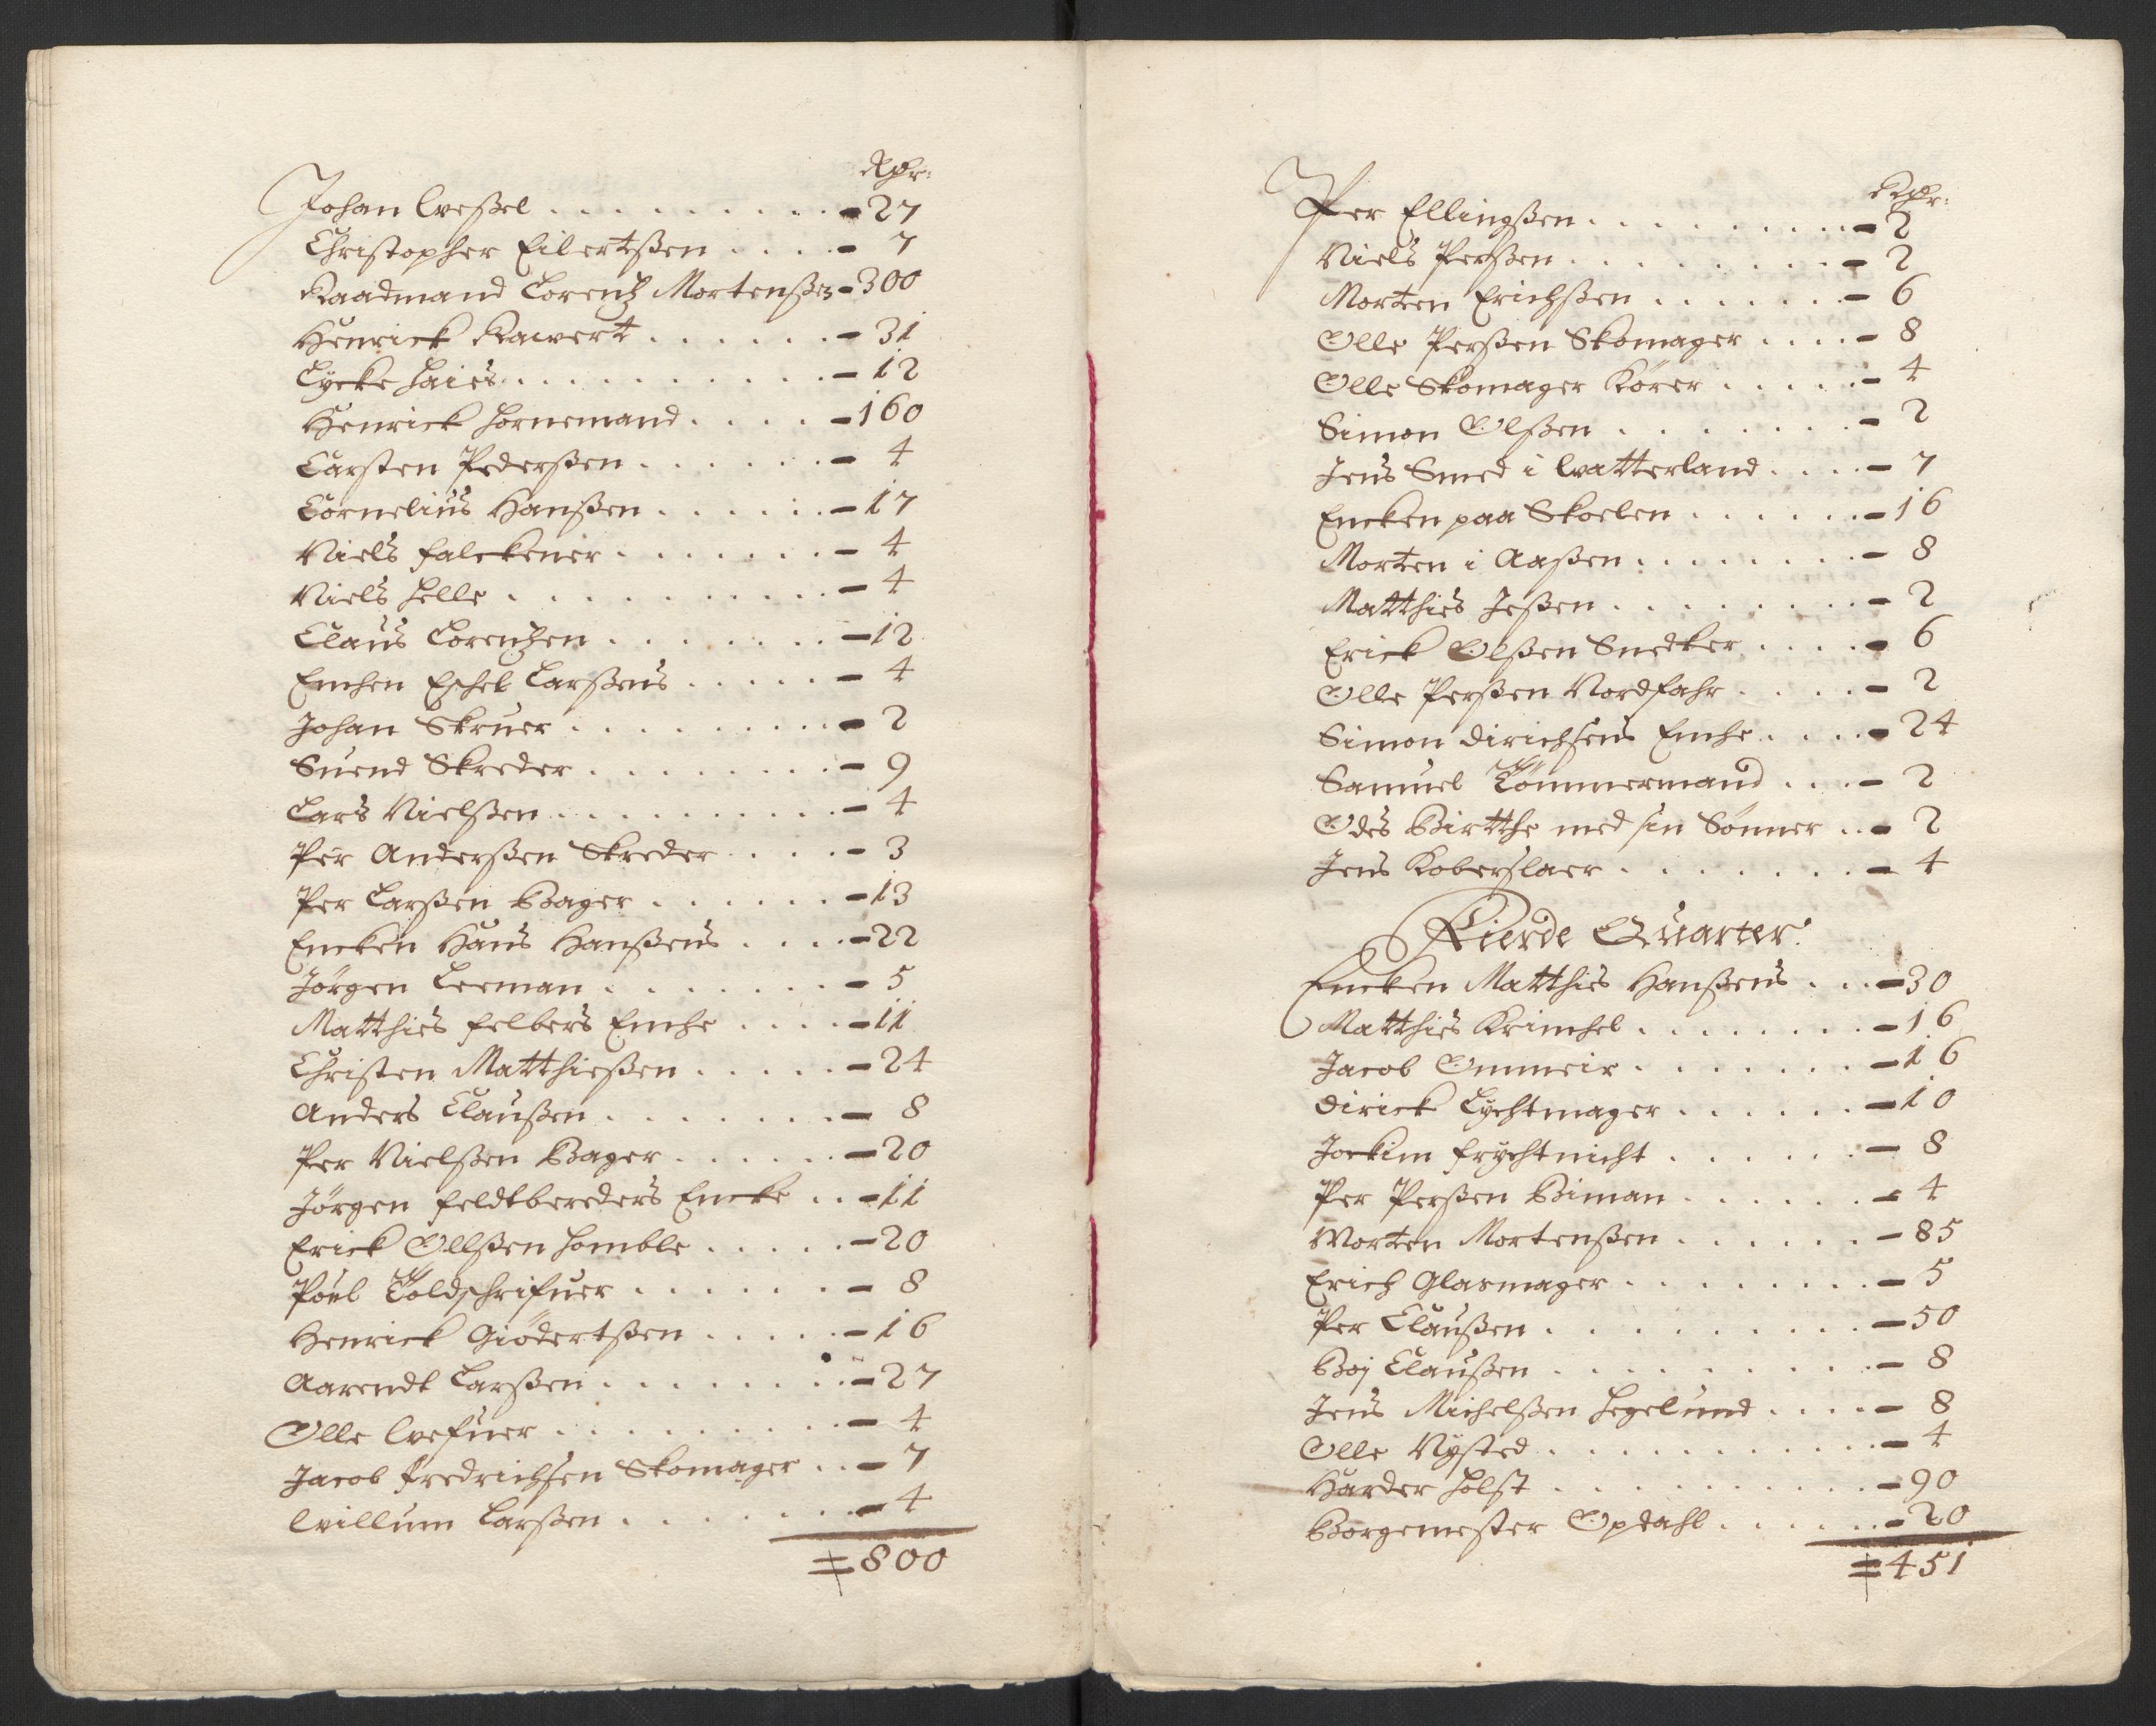 Rdr:
Johan Wessel . . . . . . . . . - 27
Christopher Eilertßen . . . . - 7
Raadmand Lorentz Mortenßen - 300
Henrick Kawert . . . . . . - 31
Lycke Haies . . . . . . . . . . - 12
Henrick Hornemand . . . . - 160
Carsten Pederßen . . . . . . - 4
Cornelius Hanßen . . . . . . - 17
Niels Falckener . . . . . . . - 4
Niels Helle . . . . . . . . . . - 4
Claus Lorentzen . . . . . . . - 12
Enchen Eschel Larßens . . . . . - 4
Johan Skruer . . . . . . . . - 2
Suend Skreder . . . . . . . . - 9
Lars Nielßen . . . . . . . . . . - 4
Per Anderßen Skreder . . . . - 3
Per Larßen Bager . . . . . . - 13
Encken Hans Hanßens . . . . - 22
Jörgen Leeman . . . . . . . - 5
Matthies Felbers Enche . . . . - 11
Christen Matthießen . . . . . - 24
Anders Claußen . . . . . . . - 8
Per Nielßen Bager . . . . . . - 20
Jörgen Feldtbereders Encke . . - 11
Erick Ollßen Homble . . . . . - 20
Poul Toldschrifuer . . . . . . - 8
Henrick Giödertßen . . . . . - 16
Aarendt Larßen . . . . . . . . - 27
Olle Wefuer . . . . . . . . . - 4
Jacob Fredrichsen Skomager . . - 7
Willum Larßen . . . . . . . - 4
= 800
Rdr:
Per Ellingßen . . . . . . . . . - 2
Niels Perßen . . . . . . . . - 2
Morten Erichßen . . . . . . . - 6
Olle Perßen Skomager . . . . - 8
Olle Skomager Körer . . . . . - 4
Simon Olßen . . . . . . . - 2
Jens Smed i Watterland . . . . - 7
Encken paa Skoelen . . . . . . - 16
Morten i Aaßen . . . . . . . . - 8
Matthies Jeßen . . . . . . . . - 2
Erick Olßen Snedker . . . . - 6
Olle Perßen Nordfahr . . . . - 2
Simon Dirichsens Enche . . . . - 24
Samuel Tömmermand . . . - 2
Odes Birtthe med sin Sönner . . - 2
Jens Koberslaer . . . . . . . - 4
Fierde Quarter.
Encken Matthies Hanßens . . . - 30
Matthies Krimhel . . . . . . . - 16
Jacob Ommeir . . . . . . . - 16
Dirick Lychtmager . . . . . . - 10
Jockim Frychtnicht . . . . . . - 8
Per Perßen Biman . . . . . . - 4
Morten Mortenßen . . . . . . - 85
Erich Glasmager . . . . . . . . - 5
Per Claußen . . . . . . . . . . - 50
Boj Claußen . . . . . . . . . - 8
Jens Michelßen Hegelund . . . . - 8
Olle Nysted . . . . . . . . . . . - 4
Harder Holst . . . . . . . . . . - 90
Borgemester Opdahl . . . . . . - 20
= 451